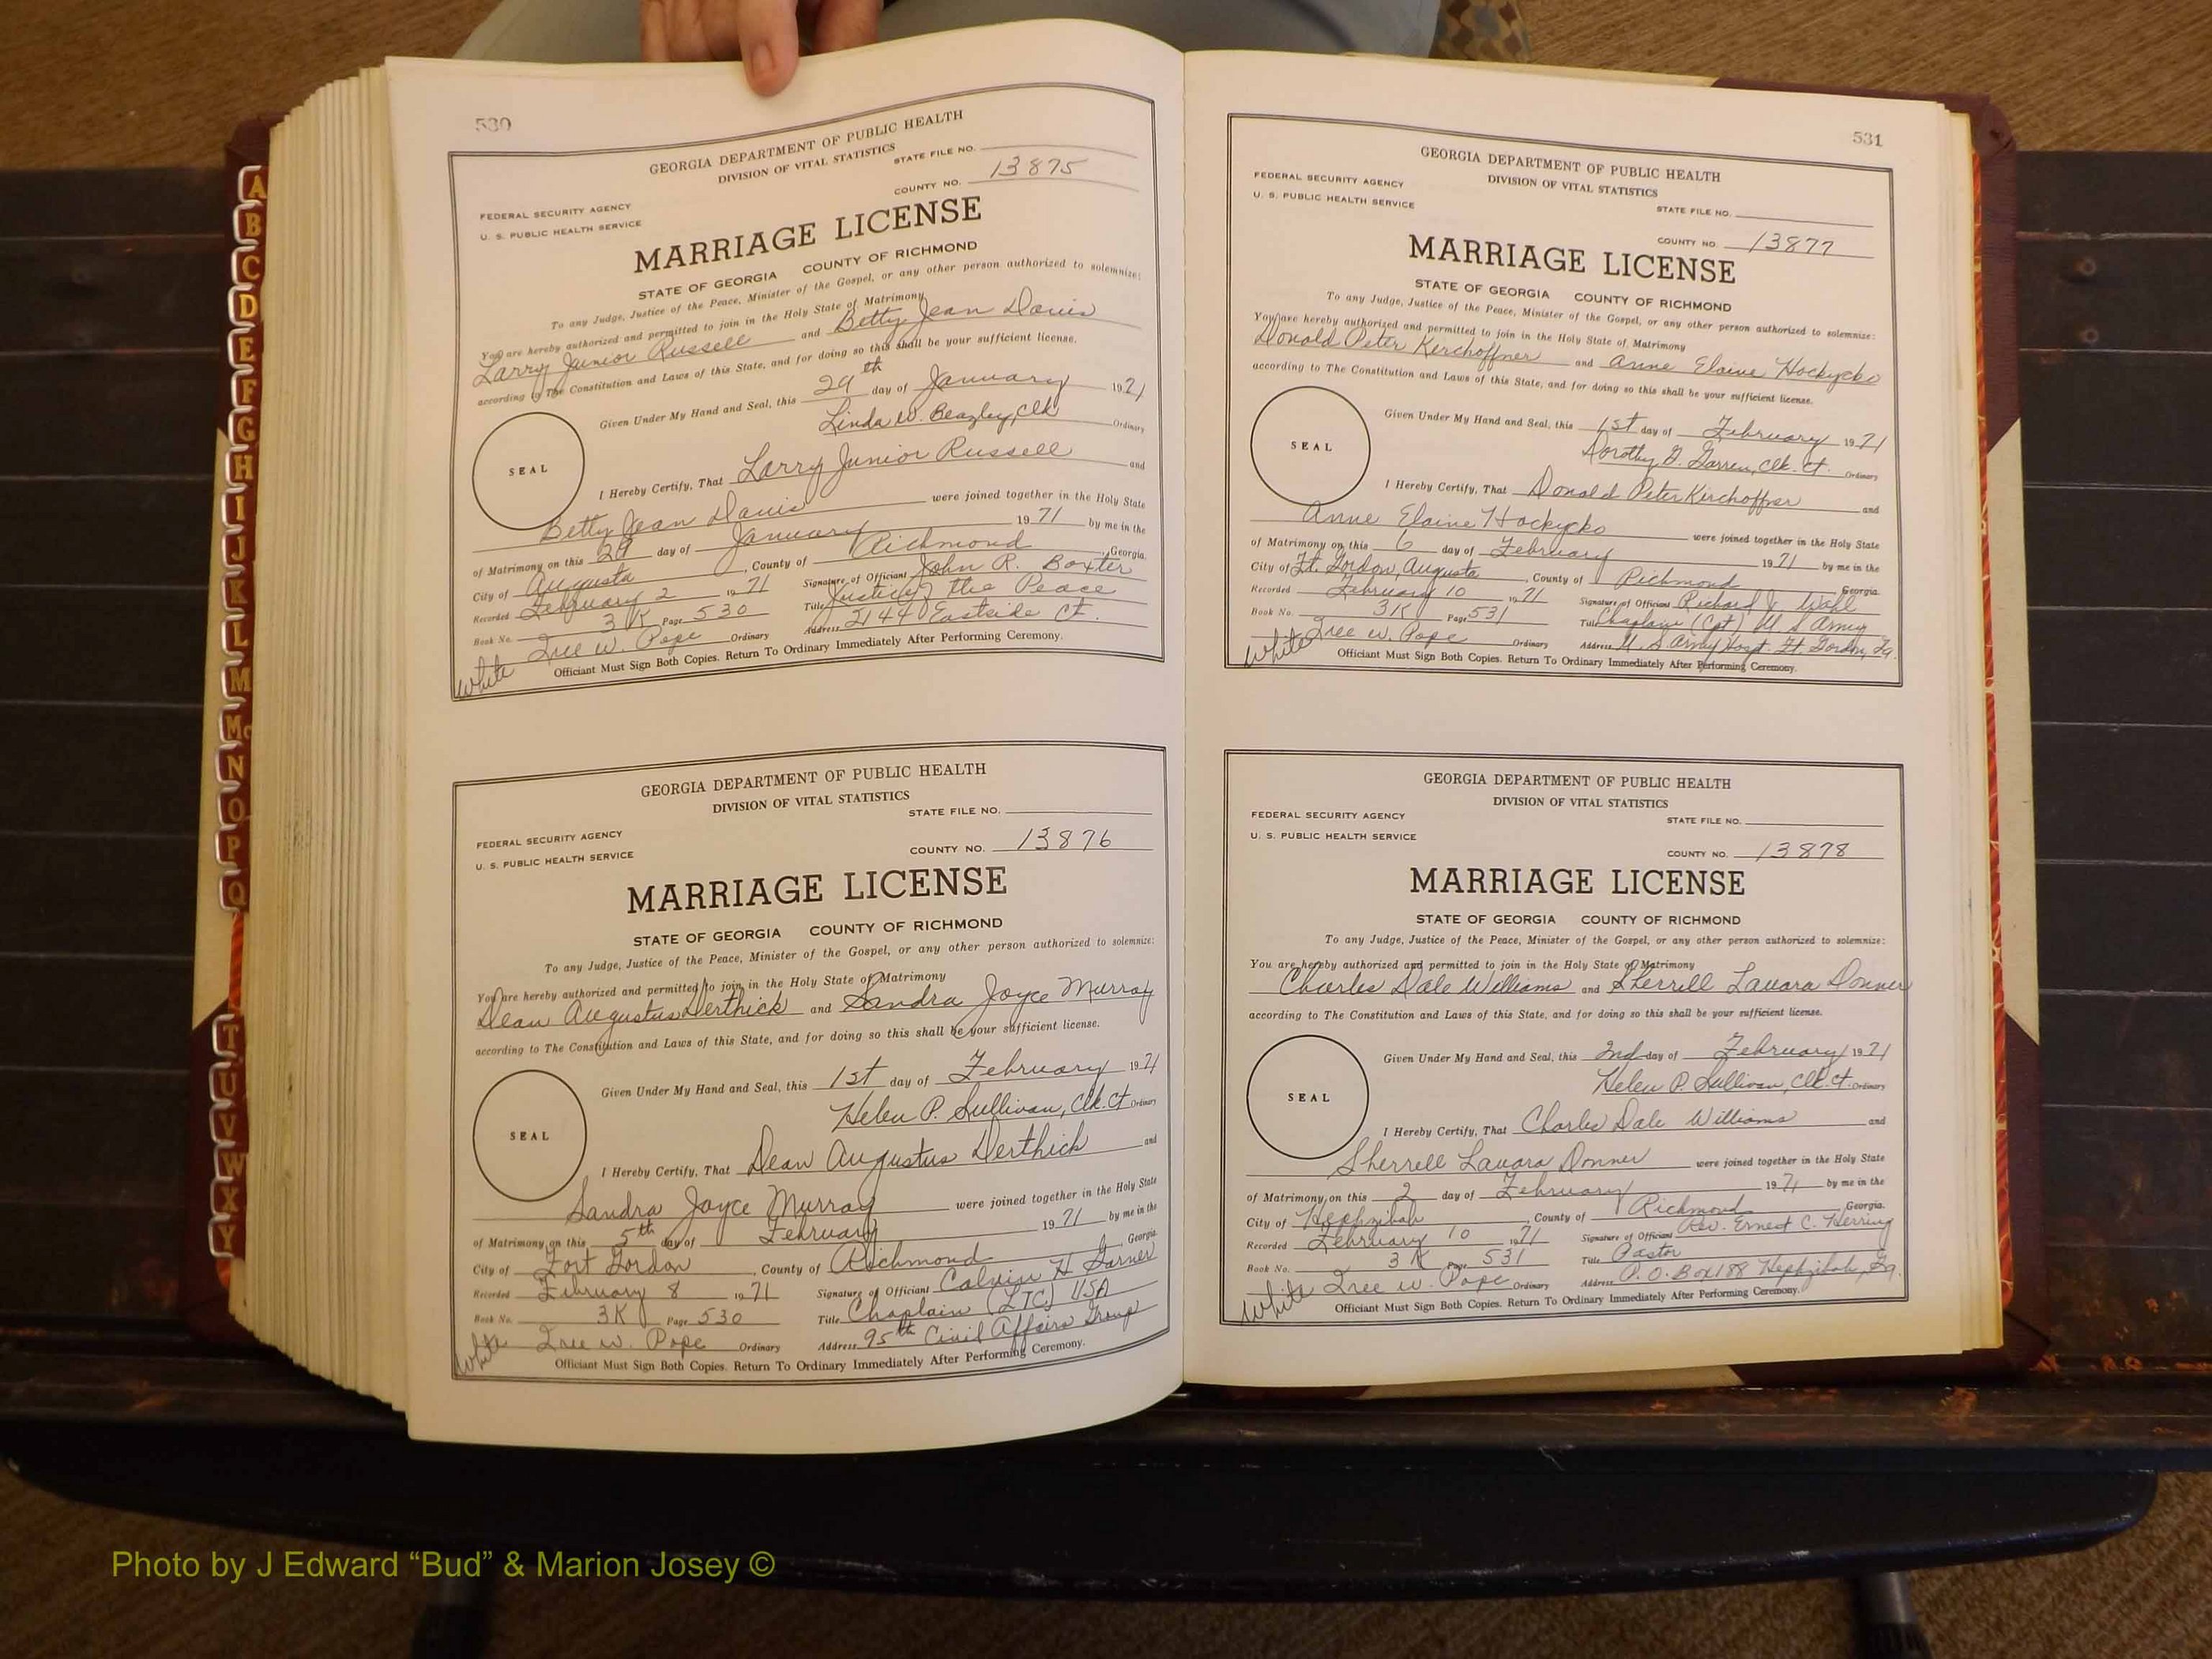 530
GEORGIA DEPARTMENT OF PUBLIC HEALTH
DIVISION OF VITAL STATISTICS
STATE FILE NO.
COUNTY NO. 13875
FEDERAL SECURITY AGENCY
U. S. PUBLIC HEALTH SERVICE
MARRIAGE LICENSE
STATE OF GEORGIA COUNTY OF RICHMOND
To any Judge, Justice of the Peace, Minister of the Gospel, or any other person authorized to solemnize:
You are hereby authorized and permitted to join in the Holy State of Matrimony
Larry Junior Russell and Betty Jean Davis
according to The Constitution and Laws of this State, and for doing so this shall be your sufficient license.
Given Under My Hand and Seal, this 29th day of January 1971
Linda W. Beazley, Clk Ordinary
SEAL
I Hereby Certify, That Larry Junior Russell and
Betty Jean Davis were joined together in the Holy State
of Matrimony on this 29 day of January 1971 by me in the
City of Augusta, County of Richmond, Georgia.
Recorded February 2 1971 Signature of Officiant John R. Baxter
Book No. 3K Page 530 Title Justice of the Peace
Tree W. Pope Ordinary Address 2144 Eastside Ct.
White Officiant Must Sign Both Copies. Return To Ordinary Immediately After Performing Ceremony.
GEORGIA DEPARTMENT OF PUBLIC HEALTH
DIVISION OF VITAL STATISTICS
STATE FILE NO.
FEDERAL SECURITY AGENCY
U. S. PUBLIC HEALTH SERVICE
COUNTY NO. 13876
MARRIAGE LICENSE
STATE OF GEORGIA COUNTY OF RICHMOND
To any Judge, Justice of the Peace, Minister of the Gospel, or any other person authorized to solemnize:
You are hereby authorized and permitted to join in the Holy State of Matrimony
Dean Augustus Derthick and Sandra Joyce Murray
according to The Constitution and Laws of this State, and for doing so this shall be your sufficient license.
Given Under My Hand and Seal, this 1st day of February 1971
Helen P. Sullivan, Clk. Ct Ordinary
SEAL
I Hereby Certify, That Dean Augustus Derthick and
Sandra Joyce Murray were joined together in the Holy State
of Matrimony on this 5th day of February 1971 by me in the
City of Fort Gordon, County of Richmond, Georgia
Recorded February 8 1971 Signature of Officiant Calvin H Garner
Book No. 3K Page 530 Title Chaplain (LTC) USA
Tree W. Pope Ordinary Address 95th Civil Affairs Group
White Officiant Must Sign Both Copies. Return To Ordinary Immediately After Performing Ceremony.
531
GEORGIA DEPARTMENT OF PUBLIC HEALTH
DIVISION OF VITAL STATISTICS
FEDERAL SECURITY AGENCY
U. S. PUBLIC HEALTH SERVICE
STATE FILE NO.
COUNTY NO. 13877
MARRIAGE LICENSE
STATE OF GEORGIA COUNTY OF RICHMOND
To any Judge, Justice of the Peace, Minister of the Gospel, or any other person authorized to solemnize:
You are hereby authorized and permitted to join in the Holy State of Matrimony
Donald Peter Kirchoffner and Anne Elaine Hockycko
according to The Constitution and Laws of this State, and for doing so this shall be your sufficient license.
Given Under My Hand and Seal, this 1st day of February 1971
Dorothy D. Garren, Clk. Ct. Ordinary
SEAL
I Hereby Certify, That Donald Peter Kirchoffner and
Anne Elaine Hockycko were joined together in the Holy State
of Matrimony on this 6 day of February 1971 by me in the
City of Ft. Gordon, Augusta, County of Richmond Georgia.
Recorded February 10 1971 Signature of Officiant Richard J. Wahl
Book No. 3K Page 531 Title Chaplain (Cpt) U S Army
Tree W. Pope Ordinary Address U. S Army Hosp. Ft. Gordon, Ga.
White Officiant Must Sign Both Copies. Return To Ordinary Immediately After Performing Ceremony.
GEORGIA DEPARTMENT OF PUBLIC HEALTH
DIVISION OF VITAL STATISTICS
FEDERAL SECURITY AGENCY
U. S. PUBLIC HEALTH SERVICE
STATE FILE NO.
COUNTY NO. 13878
MARRIAGE LICENSE
STATE OF GEORGIA COUNTY OF RICHMOND
To any Judge, Justice of the Peace, Minister of the Gospel, or any other person authorized to solemnize:
You are hereby authorized and permitted to join in the Holy State of Matrimony
Charles Dale Williams and Sherrell Lauara Donner
according to The Constitution and Laws of this State, and for doing so this shall be your sufficient license.
Given Under My Hand and Seal, this 2nd day of February 1971
Helen P. Sullivan, Clk. Ct. Ordinary
SEAL
I Hereby Certify, That Charles Dale Williams and
Sherrell Lauara Donner were joined together in the Holy State
of Matrimony on this 2 day of February 1971 by me in the
City of Hephzibah, County of Richmond Georgia.
Recorded February 10 1971 Signature of Officiant Rev. Ernest C. Herring
Book No. 3K Page 531 Title Pastor
Tree W. Pope Ordinary Address P.O. Box 188 Hephzibah, Ga.
White Officiant Must Sign Both Copies. Return To Ordinary Immediately After Performing Ceremony.
A
B
C
D
E
F
G
H
I
J
K
L
M
Mc
N
O
P
Q
T
U
V
W
X
Y
Photo by J Edward “Bud” & Marion Josey ©